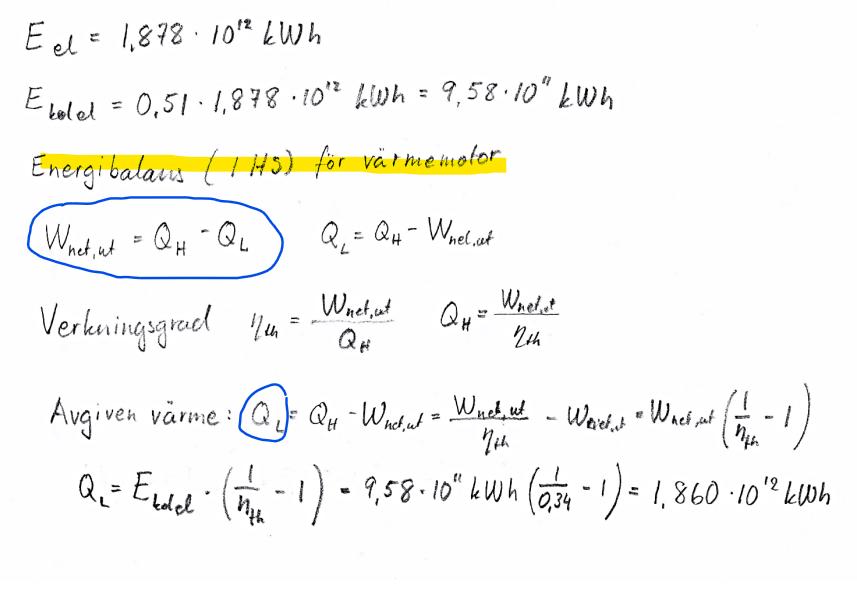 E_el = 1,878 · 10^12 kWh
E_kolel = 0,51 · 1,878 · 10^12 kWh = 9,58 · 10^11 kWh
Energibalans (1 HS) för värmemotor
W_net,ut = Q_H - Q_L    Q_L = Q_H - W_net,ut
Verkningsgrad η_th = W_net,ut / Q_H    Q_H = W_net,ut / η_th
Avgiven värme: Q_L = Q_H - W_net,ut = W_net,ut / η_th - W_net,ut = W_net,ut (1/η_th - 1)
Q_L = E_kolel · (1/η_th - 1) = 9,58 · 10^11 kWh (1/0,34 - 1) = 1,860 · 10^12 kWh